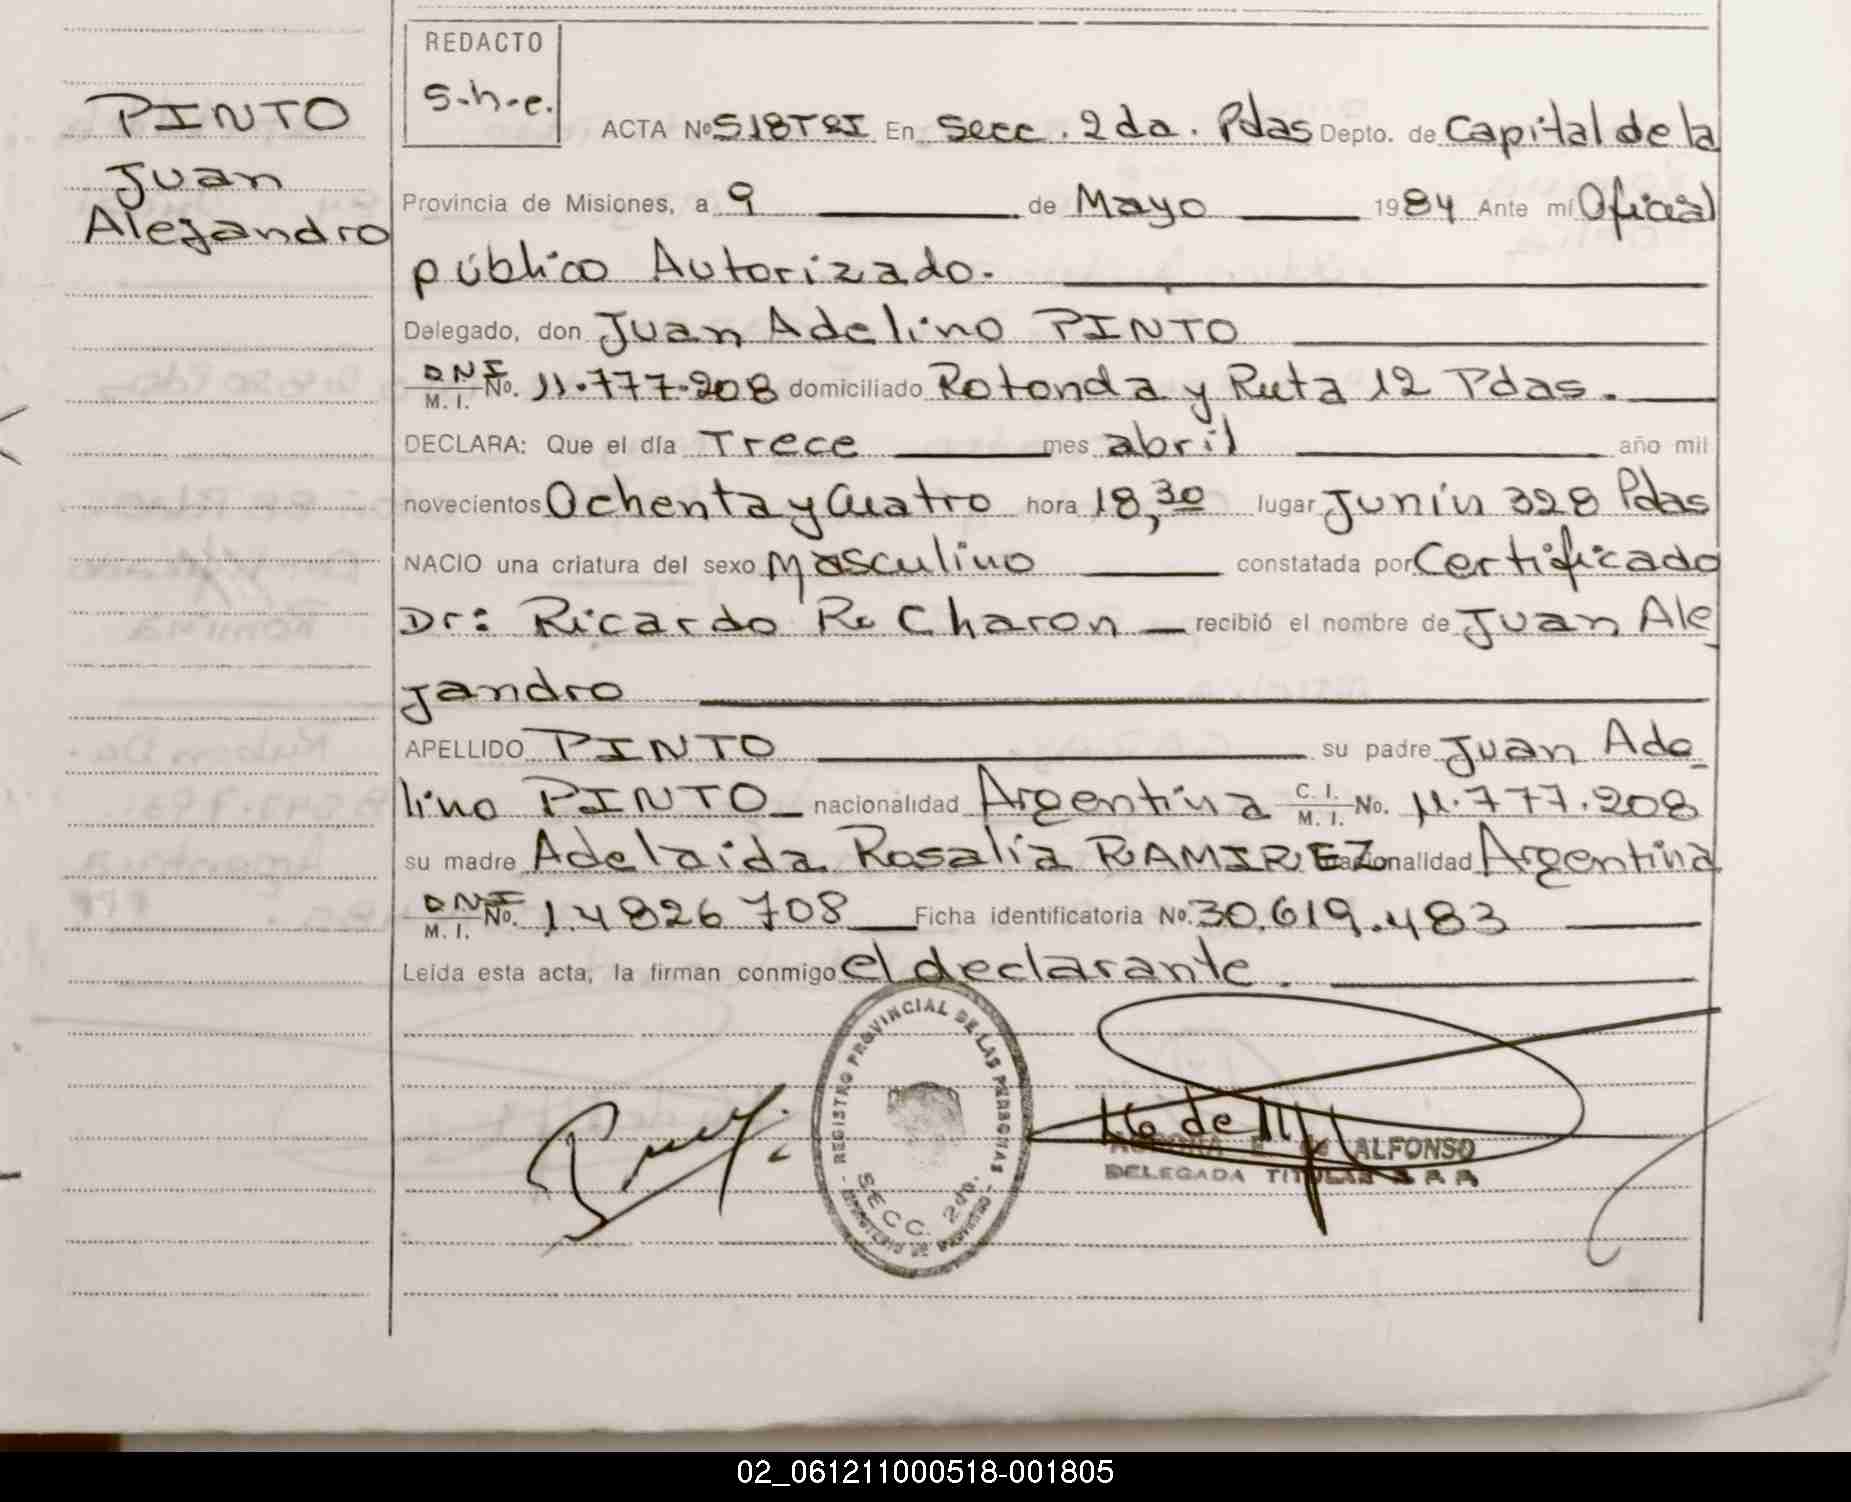 REDACTO
S.h.e.
PINTO
Juan
Alejandro
ACTA Nº 518T2I En Secc. 2da. Pdas Depto. de Capital de la
Provincia de Misiones, a 9 de Mayo 1984 Ante mí Oficial
público Autorizado.
Delegado, don Juan Adelino PINTO
DNI M. I. No. 11.777.208 domiciliado Rotonda y Ruta 12 Pdas.
DECLARA: Que el día Trece mes abril año mil
novecientos Ochenta y Cuatro hora 18,30 lugar Junín 328 Pdas
NACIO una criatura del sexo Masculino constatada por Certificado
Dr: Ricardo R. Charon recibió el nombre de Juan Ale
jandro
APELLIDO PINTO su padre Juan Ade
lino PINTO nacionalidad Argentina C. I. M. I. No. 11.777.208
su madre Adelaida Rosalia RAMIREZ nacionalidad Argentina
DNI M. I. No. 14826708 Ficha identificatoria Nº. 30.619.483
Leída esta acta, la firman conmigo el declarante.
REGISTRO PROVINCIAL DE LAS PERSONAS
SECC. 2da.
de ALFONSO
DELEGADA TITULAR
02_061211000518-001805